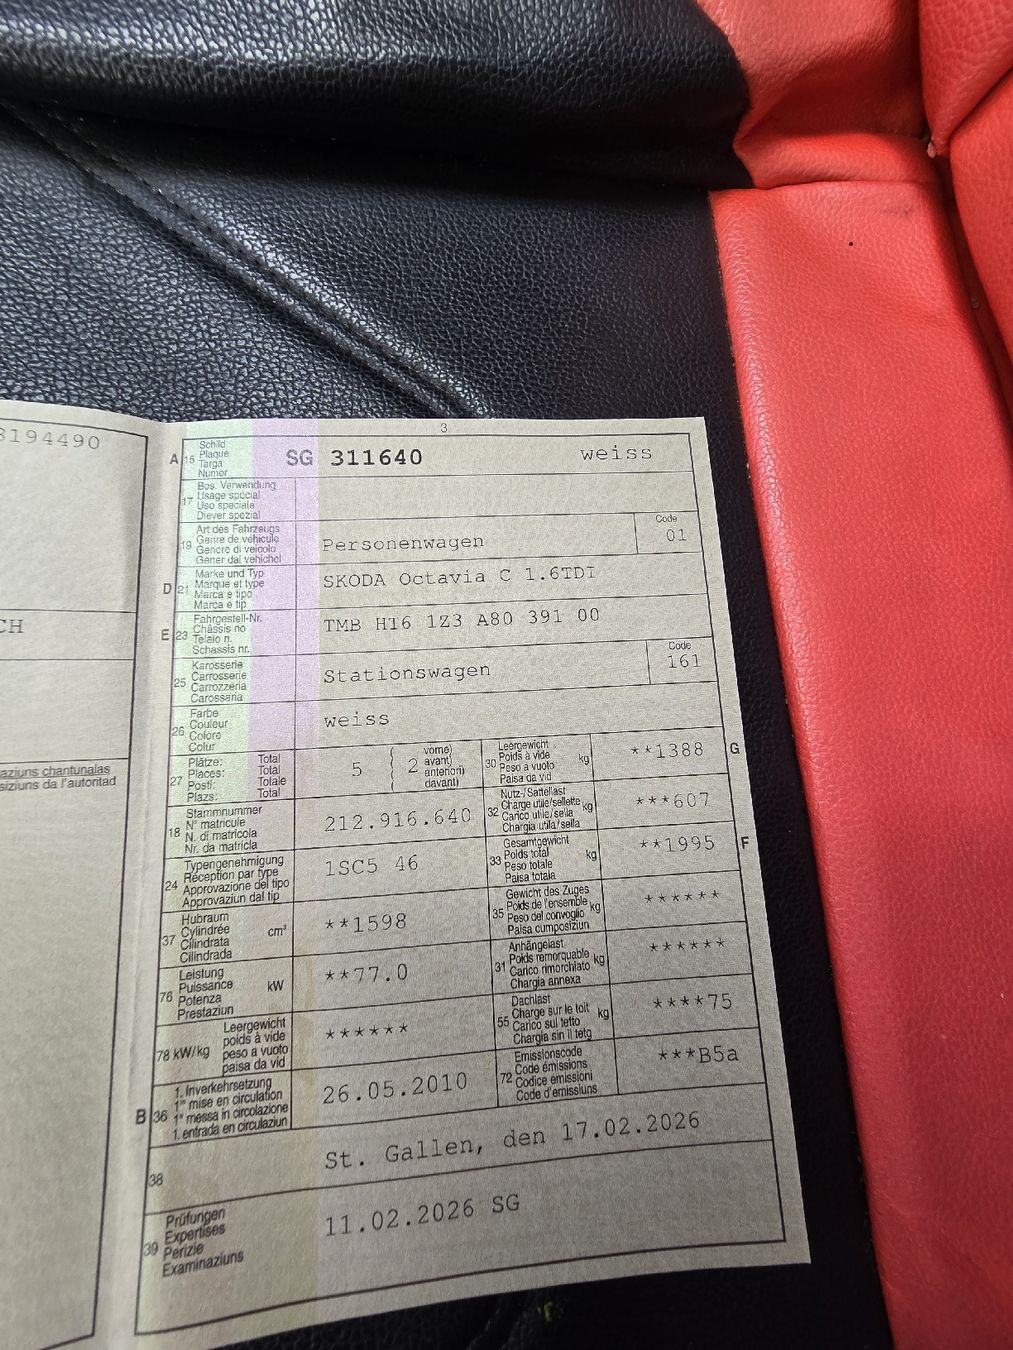 3194490
CH
aziuns chantunalas
siziuns da l'autoritad
3
A 15 Schild
Plaque
Targa
Numer
SG 311640 weiss
17 Bes. Verwendung
Usage spécial
Uso speciale
Diever spezial
19 Art des Fahrzeugs
Genre de véhicule
Genere di veicolo
Gener dal vehichel
Personenwagen
Code
01
D 21 Marke und Typ
Marque et type
Marca e tipo
Marca e tip
SKODA Octavia C 1.6TDI
E 23 Fahrgestell-Nr.
Châssis no
Telaio n.
Schassis nr.
TMB H16 1Z3 A80 391 00
25 Karosserie
Carrosserie
Carrozzeria
Carossaria
Stationswagen
Code
161
26 Farbe
Couleur
Colore
Colur
weiss
27 Plätze: Total
Places: Total
Posti: Totale
Plazs: Total
5
2
vorne)
avant)
anteriori)
davant)
30 Leergewicht
Poids à vide
Peso a vuoto
Paisa da vid
kg
**1388 G
18 Stammnummer
N° matricule
N. di matricola
Nr. da matricla
212.916.640
32 Nutz-/Sattellast
Charge utile/sellette
Carico utile/sella
Chargia utila/sella
kg
***607
24 Typengenehmigung
Réception par type
Approvazione del tipo
Approvaziun dal tip
1SC5 46
33 Gesamtgewicht
Poids total
Peso totale
Paisa totala
kg
**1995 F
37 Hubraum
Cylindrée
Cilindrata
Cilindrada
cm³
**1598
35 Gewicht des Zuges
Poids de l'ensemble
Peso del convoglio
Paisa cumposiziun
kg
******
76 Leistung
Puissance
Potenza
Prestaziun
kW
**77.0
31 Anhängelast
Poids remorquable
Carico rimorchiato
Chargia annexa
kg
******
78 kW/kg Leergewicht
poids à vide
peso a vuoto
paisa da vid
******
55 Dachlast
Charge sur le toit
Carico sul tetto
Chargia sin il tetg
kg
****75
B 36 1. Inverkehrsetzung
1re mise en circulation
1a messa in circolazione
1. entrada en circulaziun
26.05.2010
72 Emissionscode
Code émissions
Codice emissioni
Code d'emissiuns
***B5a
38
St. Gallen, den 17.02.2026
39 Prüfungen
Expertises
Perizie
Examinaziuns
11.02.2026 SG